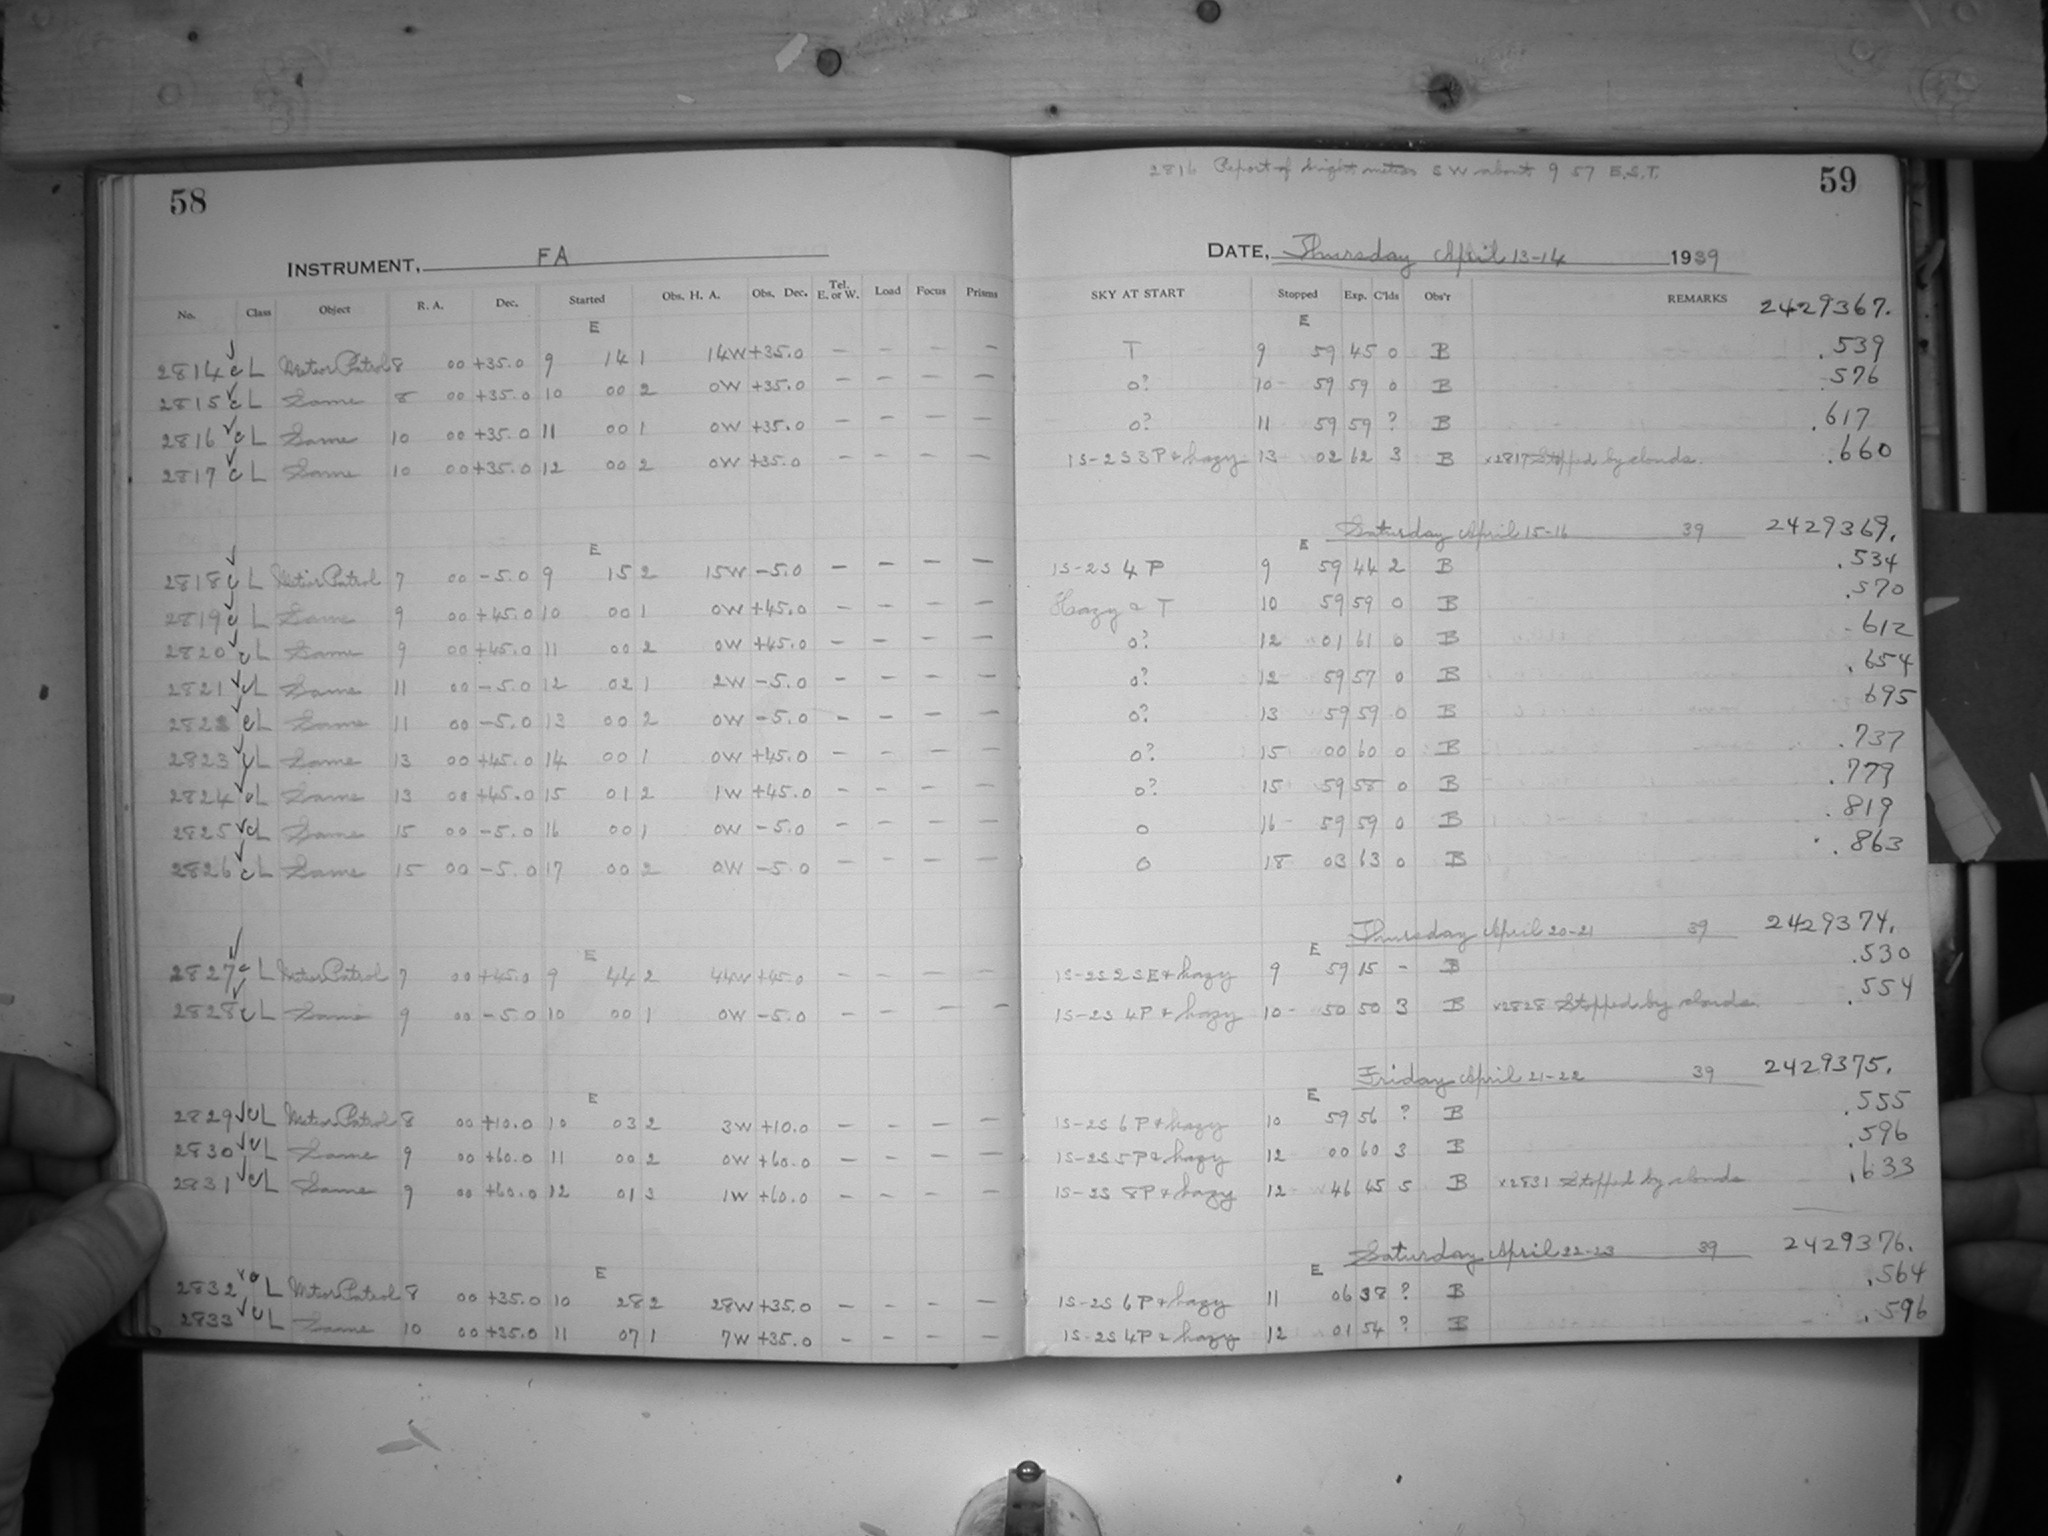 58
INSTRUMENT, FA
No. Class Object R. A. Dec. Started Obs. H. A. Obs. Dec. Tel. E. or W. Load Focus Prisms
E
2814 c L Meteor Patrol 8 00 +35.0 9 14 1 14W +35.0 — — — —
2815 c L Same 8 00 +35.0 10 00 2 0W +35.0 — — — —
2816 c L Same 10 00 +35.0 11 00 1 0W +35.0 — — — —
2817 c L Same 10 00 +35.0 12 00 2 0W +35.0 — — — —
E
2818 c L Meteor Patrol 7 00 -5.0 9 15 2 15W -5.0 — — — —
2819 c L Same 9 00 +45.0 10 00 1 0W +45.0 — — — —
2820 c L Same 9 00 +45.0 11 00 2 0W +45.0 — — — —
2821 c L Same 11 00 -5.0 12 02 1 2W -5.0 — — — —
2822 c L Same 11 00 -5.0 13 00 2 0W -5.0 — — — —
2823 c L Same 13 00 +45.0 14 00 1 0W +45.0 — — — —
2824 c L Same 13 00 +45.0 15 01 2 1W +45.0 — — — —
2825 c L Same 15 00 -5.0 16 00 1 0W -5.0 — — — —
2826 c L Same 15 00 -5.0 17 00 2 0W -5.0 — — — —
E
2827 c L Meteor Patrol 7 00 +45.0 9 44 2 44W +45.0 — — — —
2828 c L Same 9 00 -5.0 10 00 1 0W -5.0 — — — —
E
2829 c L Meteor Patrol 8 00 +10.0 10 03 2 3W +10.0 — — — —
2830 c L Same 9 00 +60.0 11 00 2 0W +60.0 — — — —
2831 c L Same 9 00 +60.0 12 01 3 1W +60.0 — — — —
E
2832 c L Meteor Patrol 8 00 +35.0 10 28 2 28W +35.0 — — — —
2833 c L Same 10 00 +35.0 11 07 1 7W +35.0 — — — —
2816 Report of bright meteor SW about 9 57 E.S.T.
59
DATE, Thursday April 13-14 1939
SKY AT START Stopped Exp. C'lds Obs'r REMARKS 2429367.
E
T 9 59 45 0 B .539
0? 10 59 59 0 B .576
0? 11 59 59 ? B .617
1S-2S 3P & hazy 13 02 62 3 B x2817 Stopped by clouds. .660
Saturday April 15-16 39 2429369.
E
1S-2S 4P 9 59 44 2 B .534
Hazy & T 10 59 59 0 B .570
0? 12 01 61 0 B .612
0? 12 59 57 0 B .654
0? 13 59 59 0 B .695
0? 15 00 60 0 B .737
0? 15 59 58 0 B .779
0 16 59 59 0 B .819
0 18 03 63 0 B .863
Thursday April 20-21 39 2429374.
E
1S-2S 2SE & hazy 9 59 15 - B .530
1S-2S 4P & hazy 10 50 50 3 B x2828 Stopped by clouds. .554
Friday April 21-22 39 2429375.
E
1S-2S 6P & hazy 10 59 56 ? B .555
1S-2S 5P & hazy 12 00 60 3 B .596
1S-2S 8P & hazy 12 46 45 5 B x2831 Stopped by clouds .633
Saturday April 22-23 39 2429376.
E
1S-2S 6P & hazy 11 06 38 ? B .564
1S-2S 4P & hazy 12 01 54 ? B .596